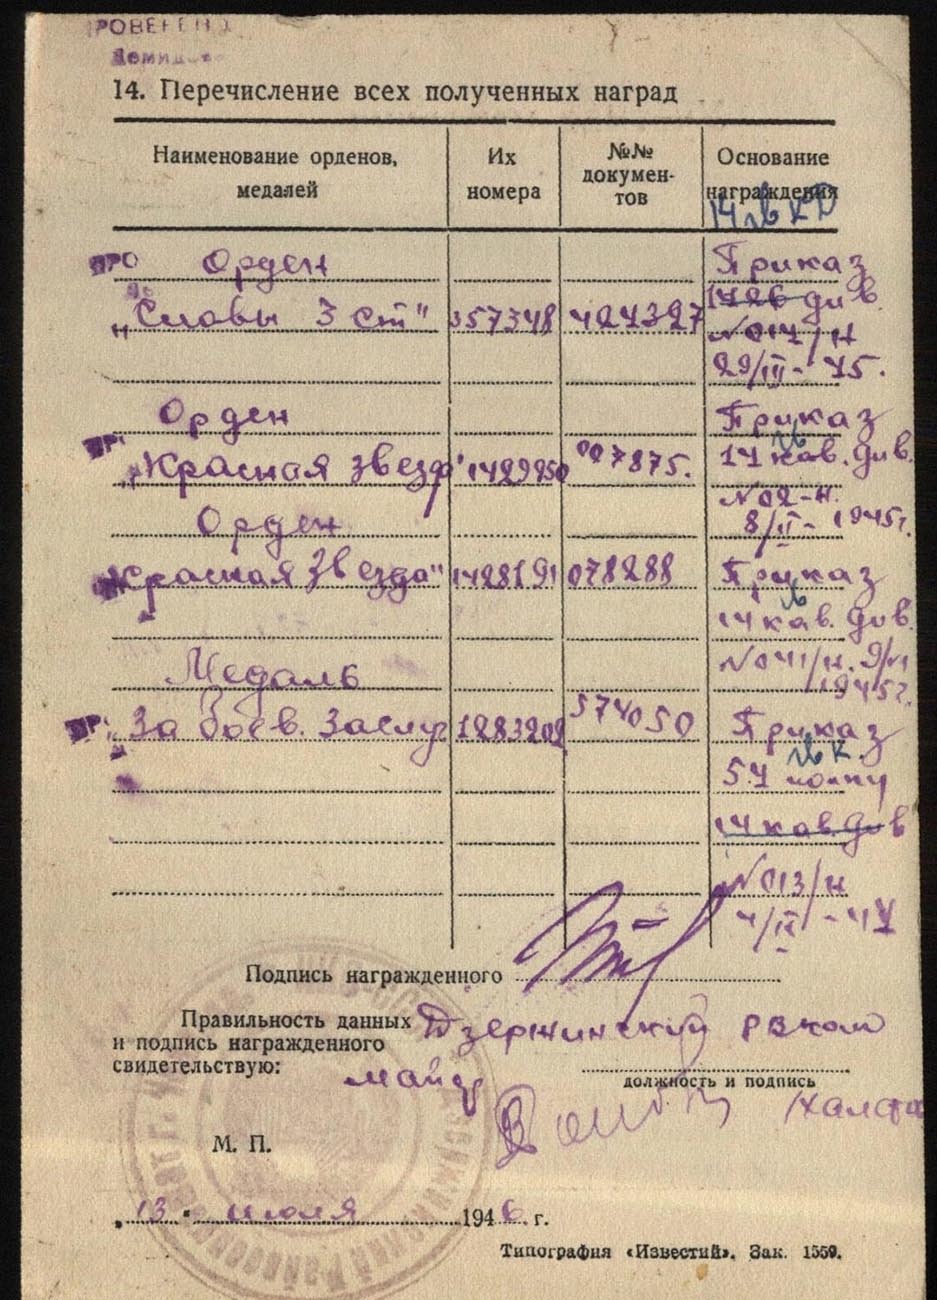 14. Перечисление всех полученных наград
Наименование орденов,
медалей
Их
номера
№№
докумен-
тов
Основание
награждения
14 гв КД
Орден
"Славы 3 ст"
357348
424327
Приказ
див.
№ 017/н
29/III-45.
Орден
"Красная звезда"
1429950
007875.
Приказ
гв
14 кав. див.
№ 02-н.
8/II-1945г.
Орден
"Красная звезда"
1428191
078288
Приказ
гв
14 кав. див.
№ 041/н.
1945г.
Медаль
За боев. заслуг
1283202
574050
Приказ
гв к.
54 полку
14 кав див
№ 013/н
Подпись награжденного
Правильность данных
и подпись награжденного
свидетельствую:
Дзержинский рвком
майор
должность и подпись
М. П.
„13" июля 1946 г.
Типография «Известий». Зак. 1559.